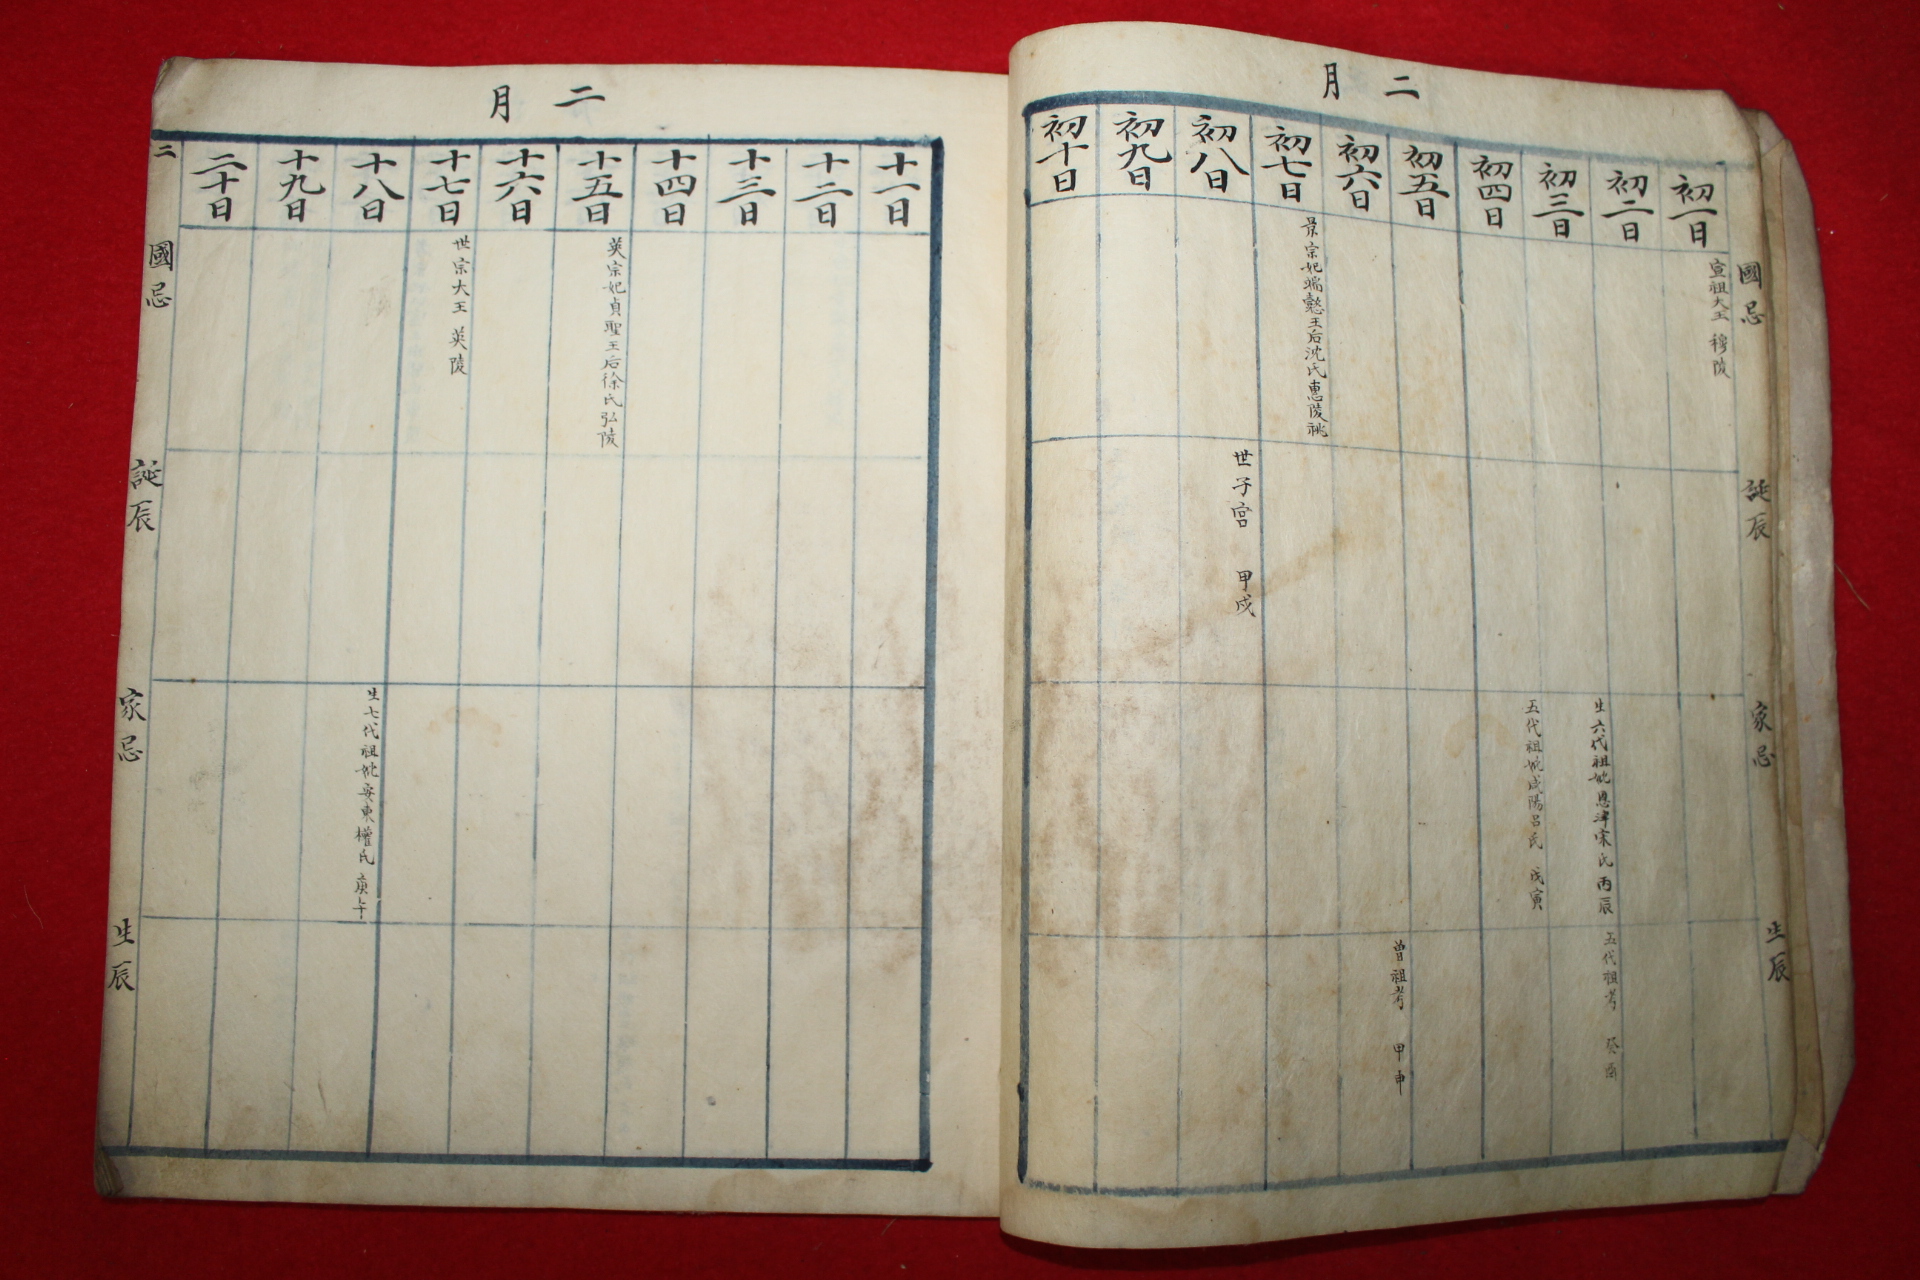 二月
國忌
誕辰
家忌
生辰
初一日
宣祖大王 穆陵
初二日
生六代祖妣恩津宋氏 丙辰
五代祖考 癸酉
初三日
五代祖妣咸陽呂氏 戊寅
初四日
初五日
曾祖考 甲申
初六日
初七日
景宗妃端懿王后沈氏惠陵祧
初八日
世子宮 甲戌
初九日
初十日
二月
十一日
十二日
十三日
十四日
十五日
英宗妃貞聖王后徐氏弘陵
十六日
十七日
世宗大王 英陵
十八日
生七代祖妣安東權氏 庚午
十九日
二十日
二
國忌
誕辰
家忌
生辰